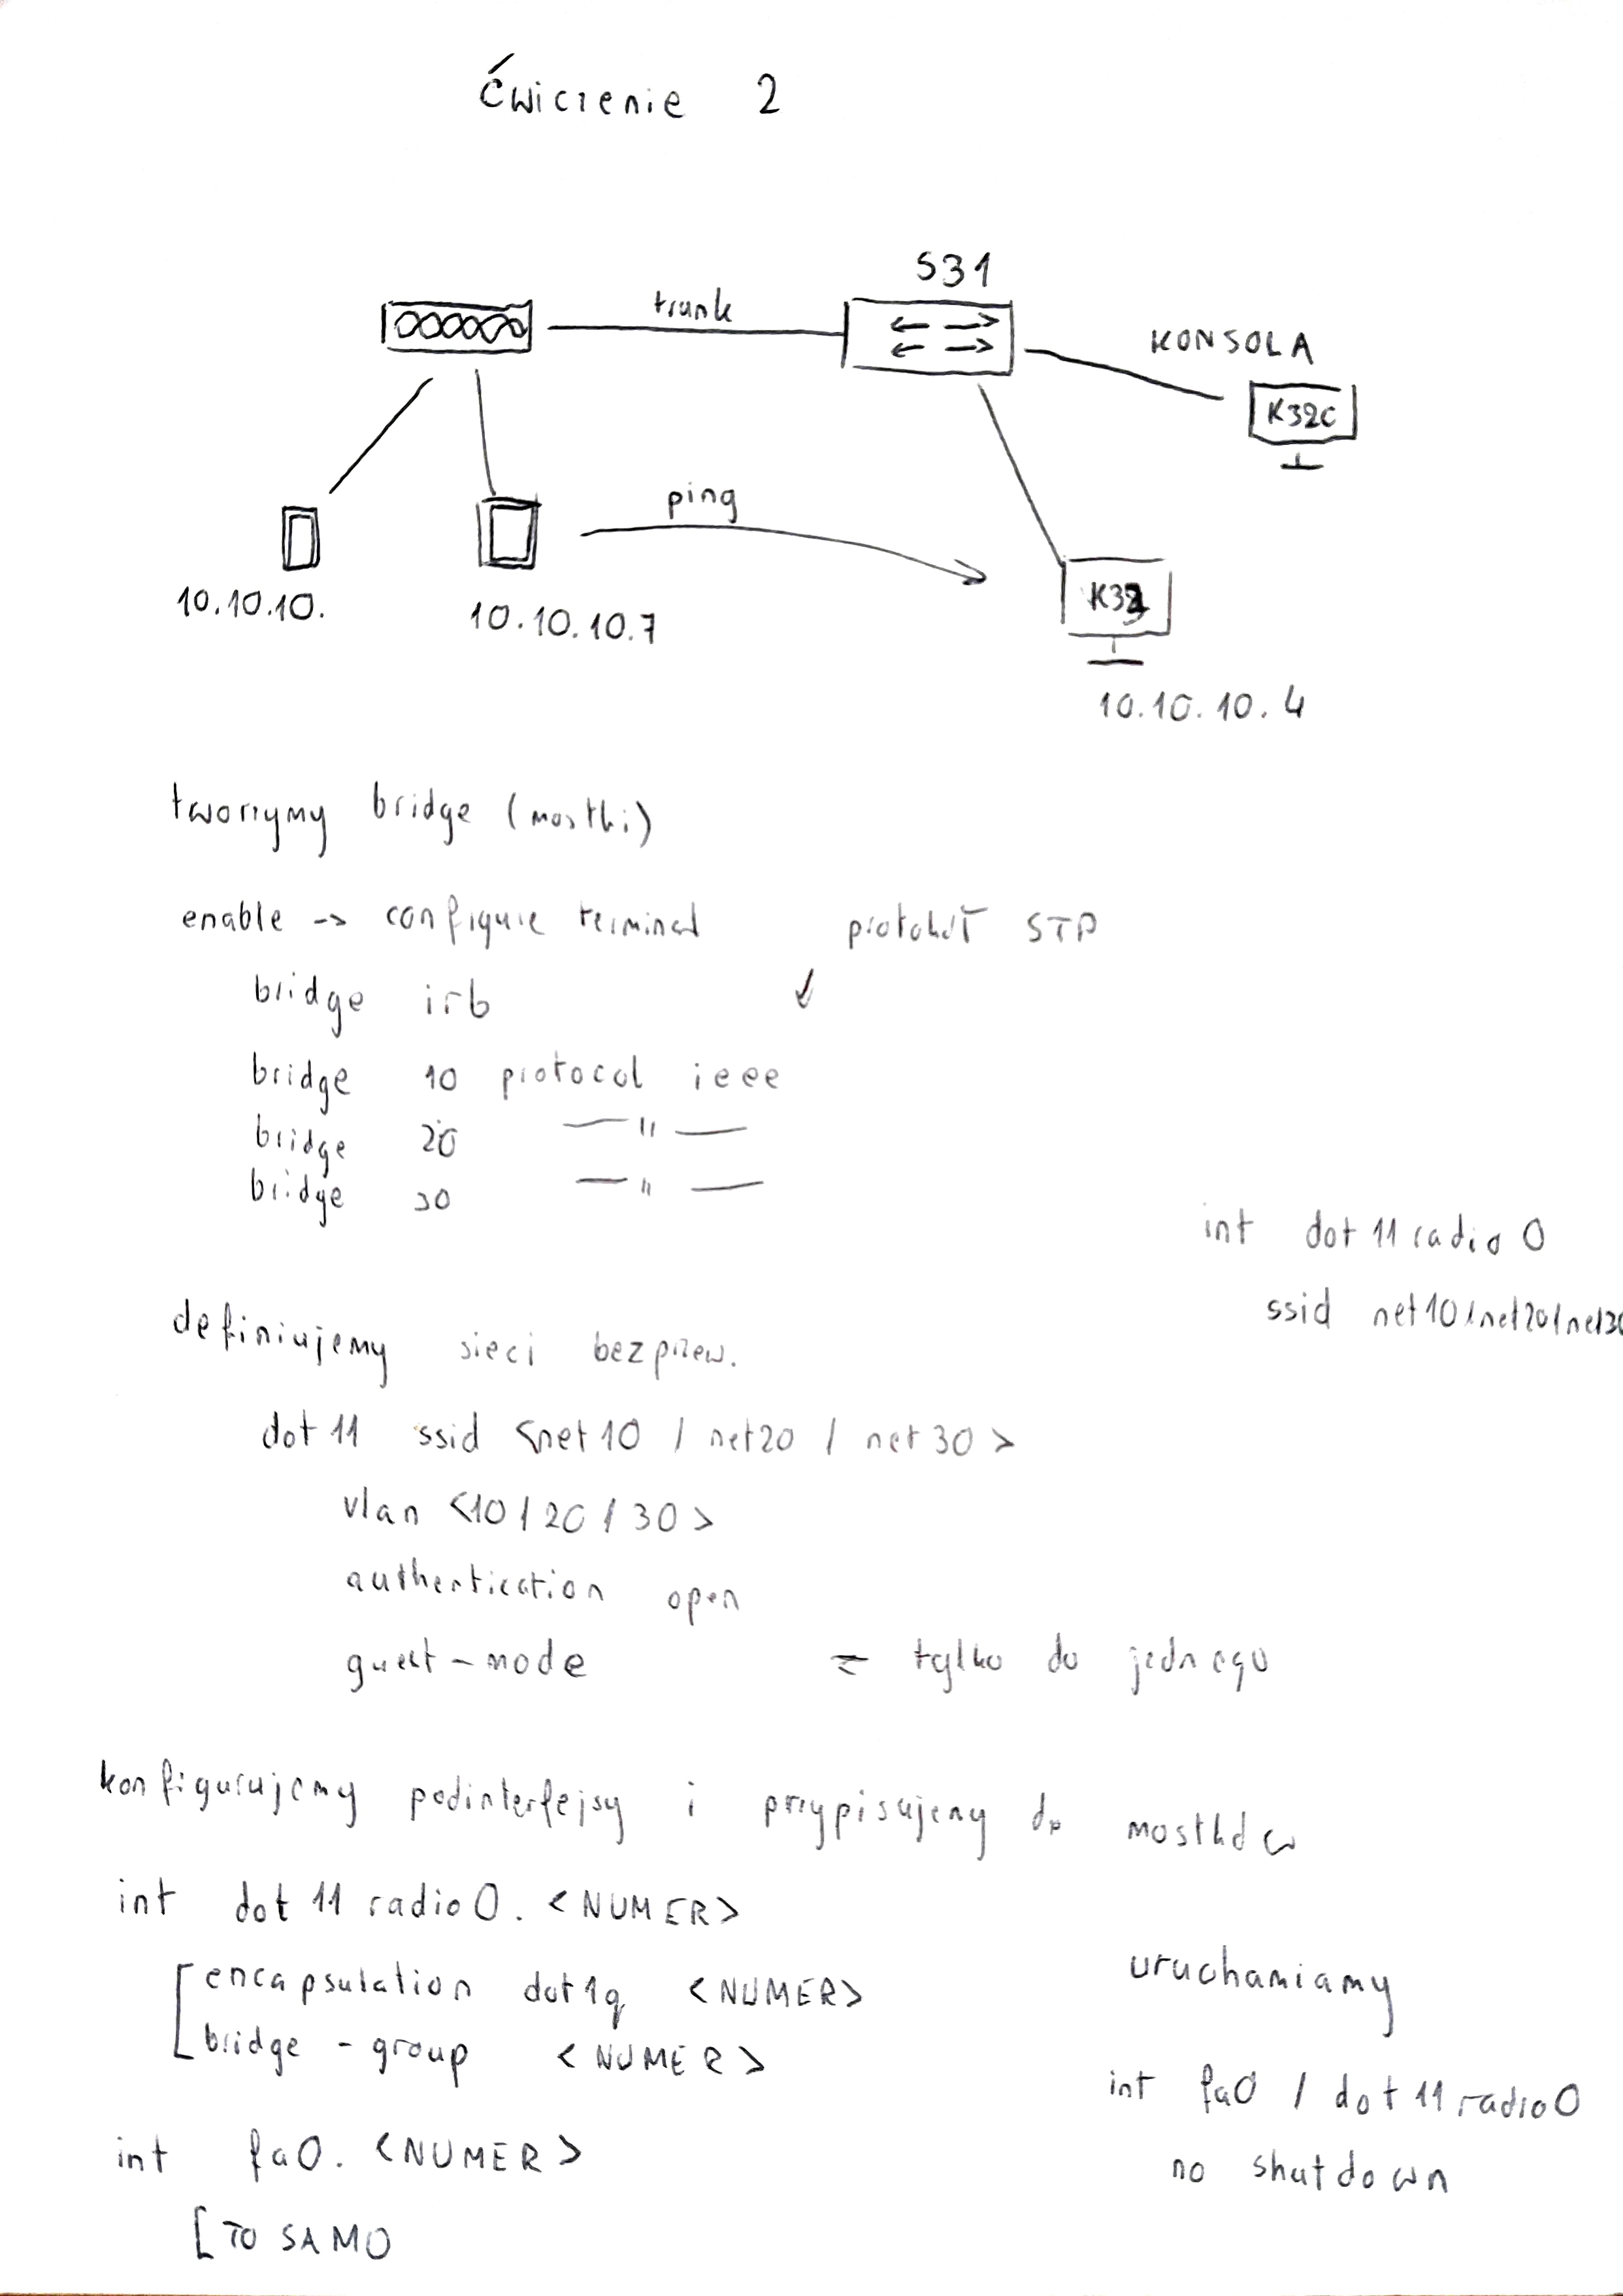 Ćwiczenie 2
S31
trunk
KONSOLA
K32C
ping
10.10.10.
10.10.10.7
10.10.10.4
tworzymy bridge (mostki)
enable -> configure terminal
protokół STP
bridge irb
bridge 10 protocol ieee
bridge 20 — " —
bridge 30 — " —
int dot11radio0
ssid net10/net20/net30
definiujemy sieci bezprzew.
dot11 ssid <net10 / net20 / net30>
vlan <10/20/30>
authentication open
guest-mode = tylko do jednego
konfigurujemy podinterfejsy i przypisujemy do mostków
int dot11radio0.<NUMER>
encapsulation dot1q <NUMER>
bridge-group <NUMER>
int fa0.<NUMER>
[TO SAMO
uruchamiamy
int fa0 / dot11radio0
no shutdown